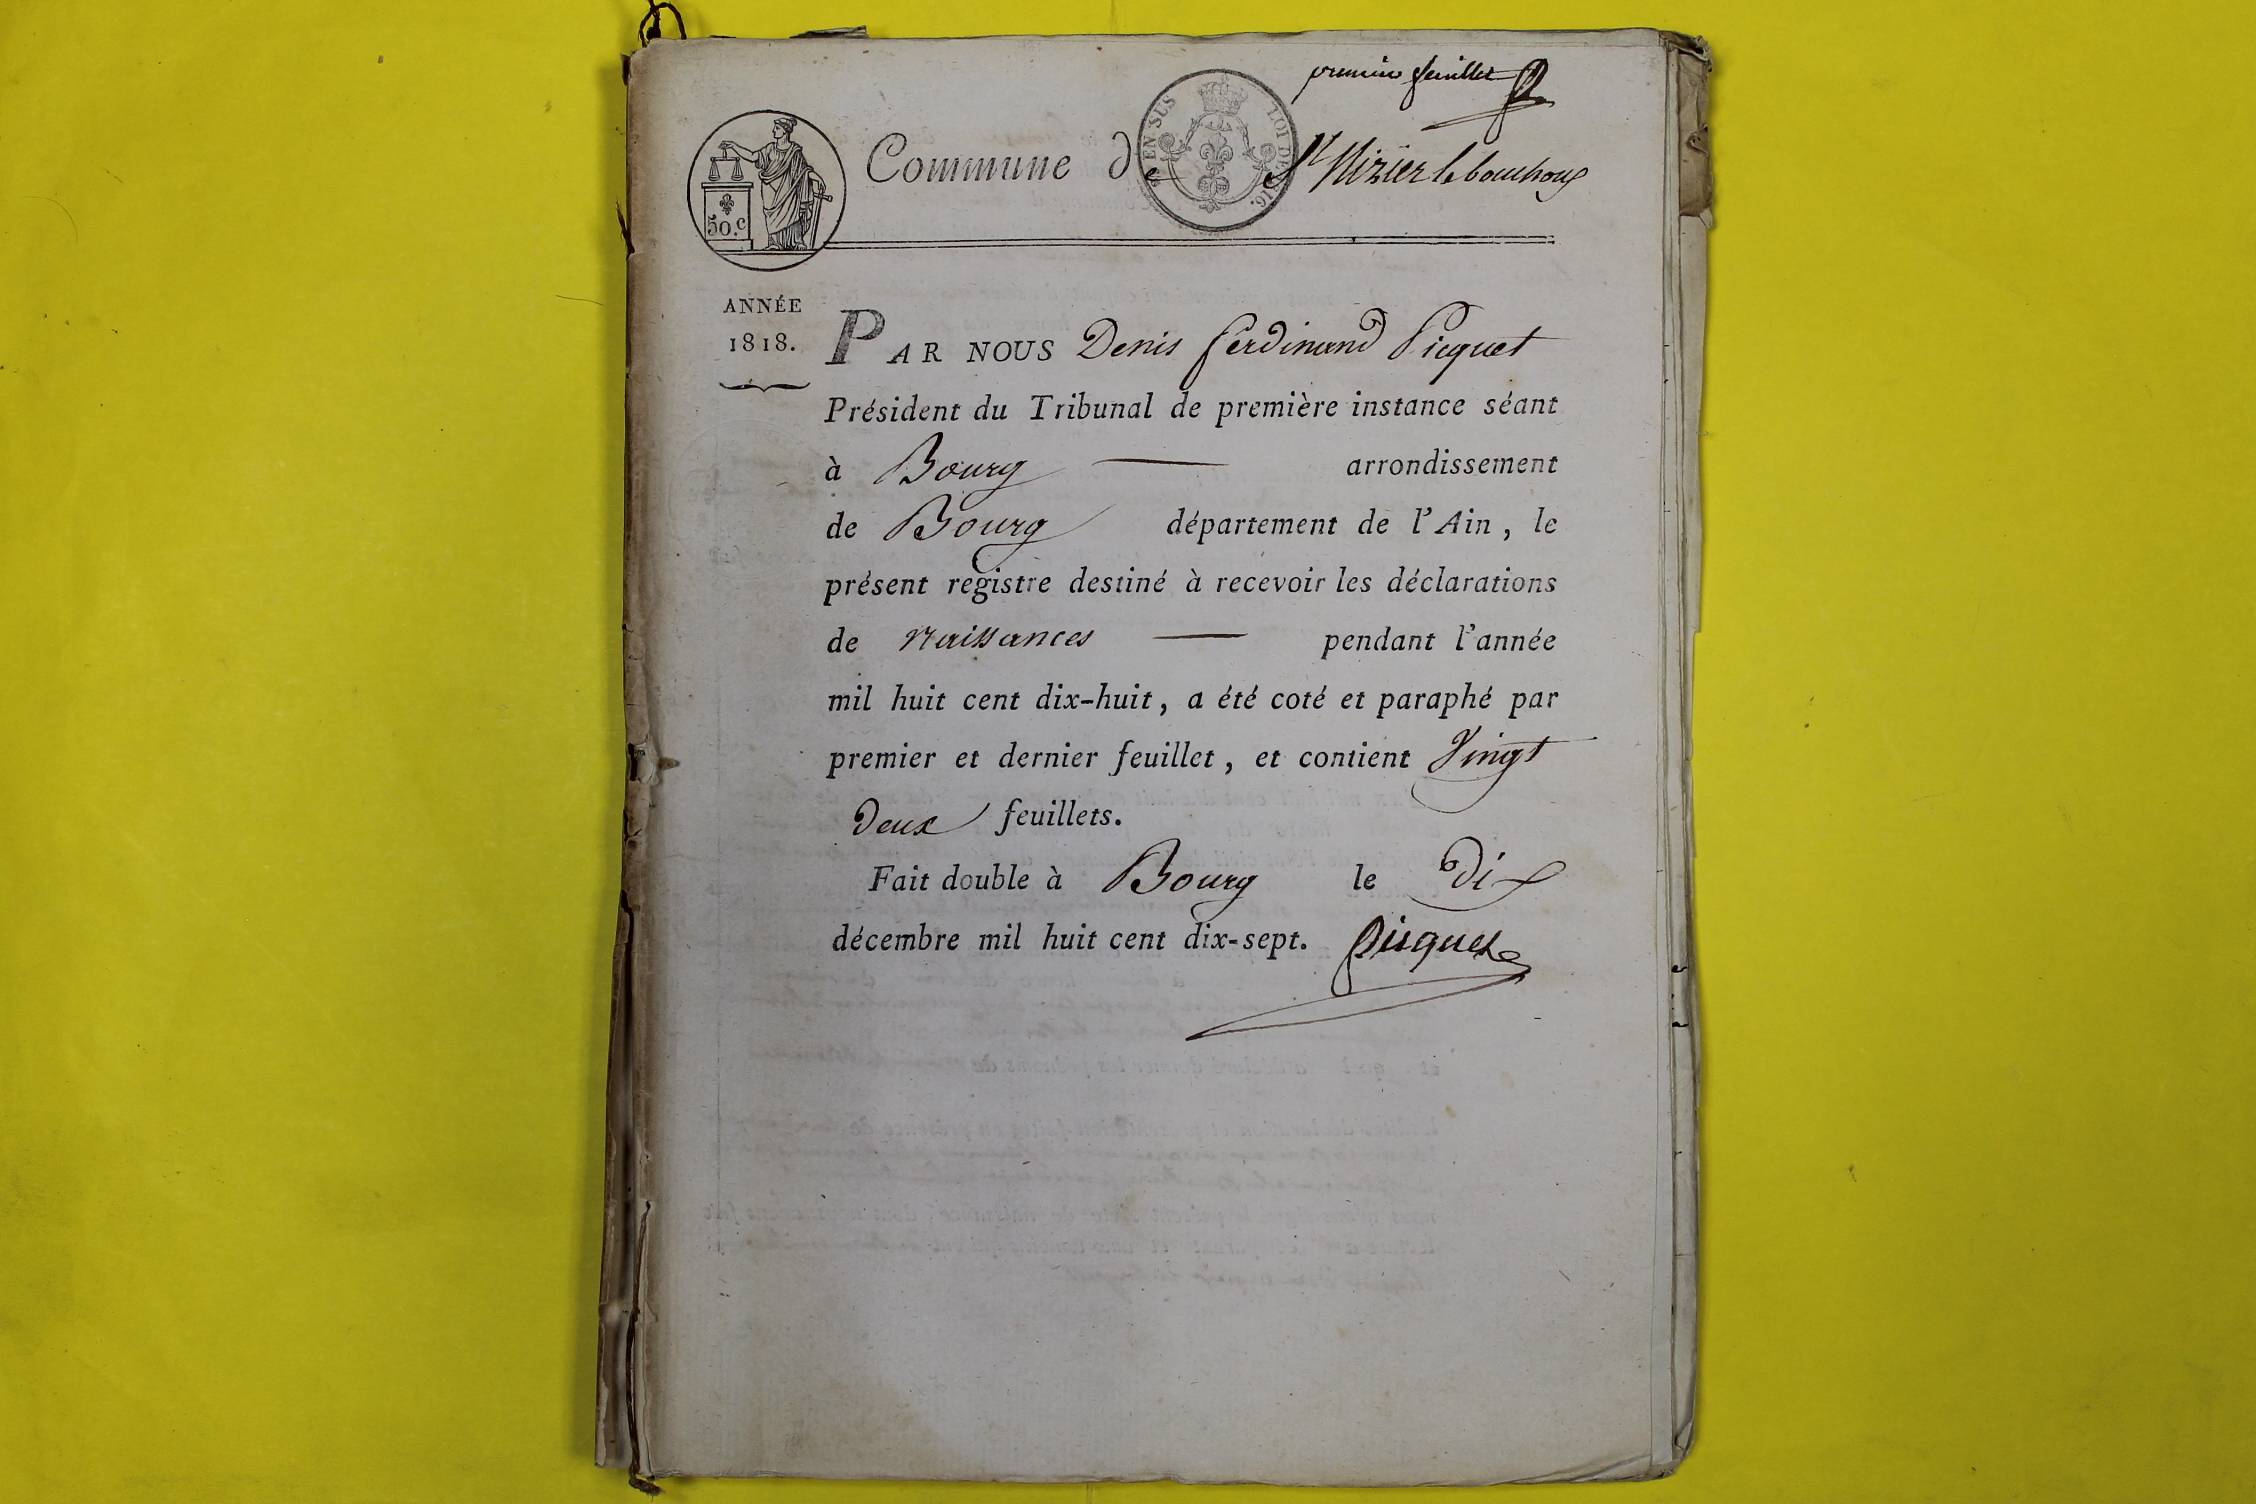 premier feuillet
EN SUS LOI DE 1816.
Commune de St Nizier le bouchoux
50.c
ANNÉE
1818.
PAR NOUS Denis ferdinand Picquet
Président du Tribunal de première instance séant
à Bourg — arrondissement
de Bourg département de l'Ain, le
présent registre destiné à recevoir les déclarations
de naissances — pendant l'année
mil huit cent dix-huit, a été coté et paraphé par
premier et dernier feuillet, et contient Vingt
Deux feuillets.
Fait double à Bourg le Dix
décembre mil huit cent dix-sept. Picquet